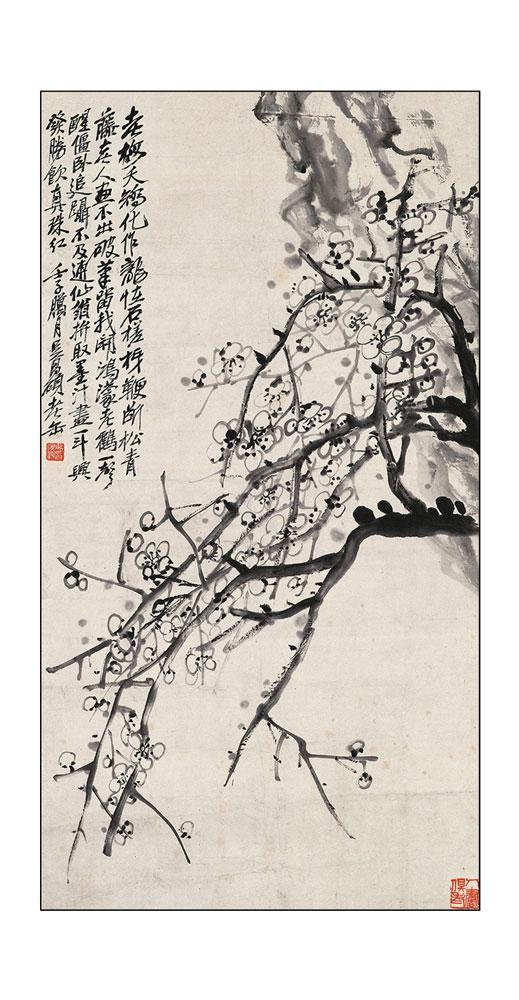 老梅夭矯化作龍怪石槎枒鞭斷松青
藤老人畫不出破筆留我開鴻濛老鶴一聲
醒僵臥追躡不及逋仙翁拚取墨汁盡一斗興
發勝飲真珠紅 壬子臘月吳昌碩老缶